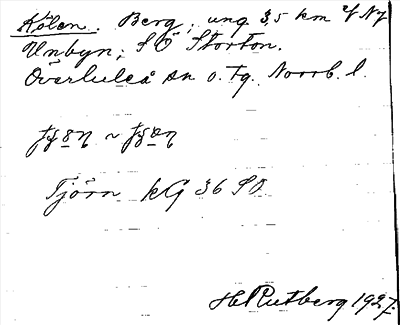 Kölen. Berg, ung 3,5 km
Unbyn; SÖ Storton.
Överluleå sn o. tg. Norrb. l.
Tjörn kG 36 SO
H. Rutberg 1927.